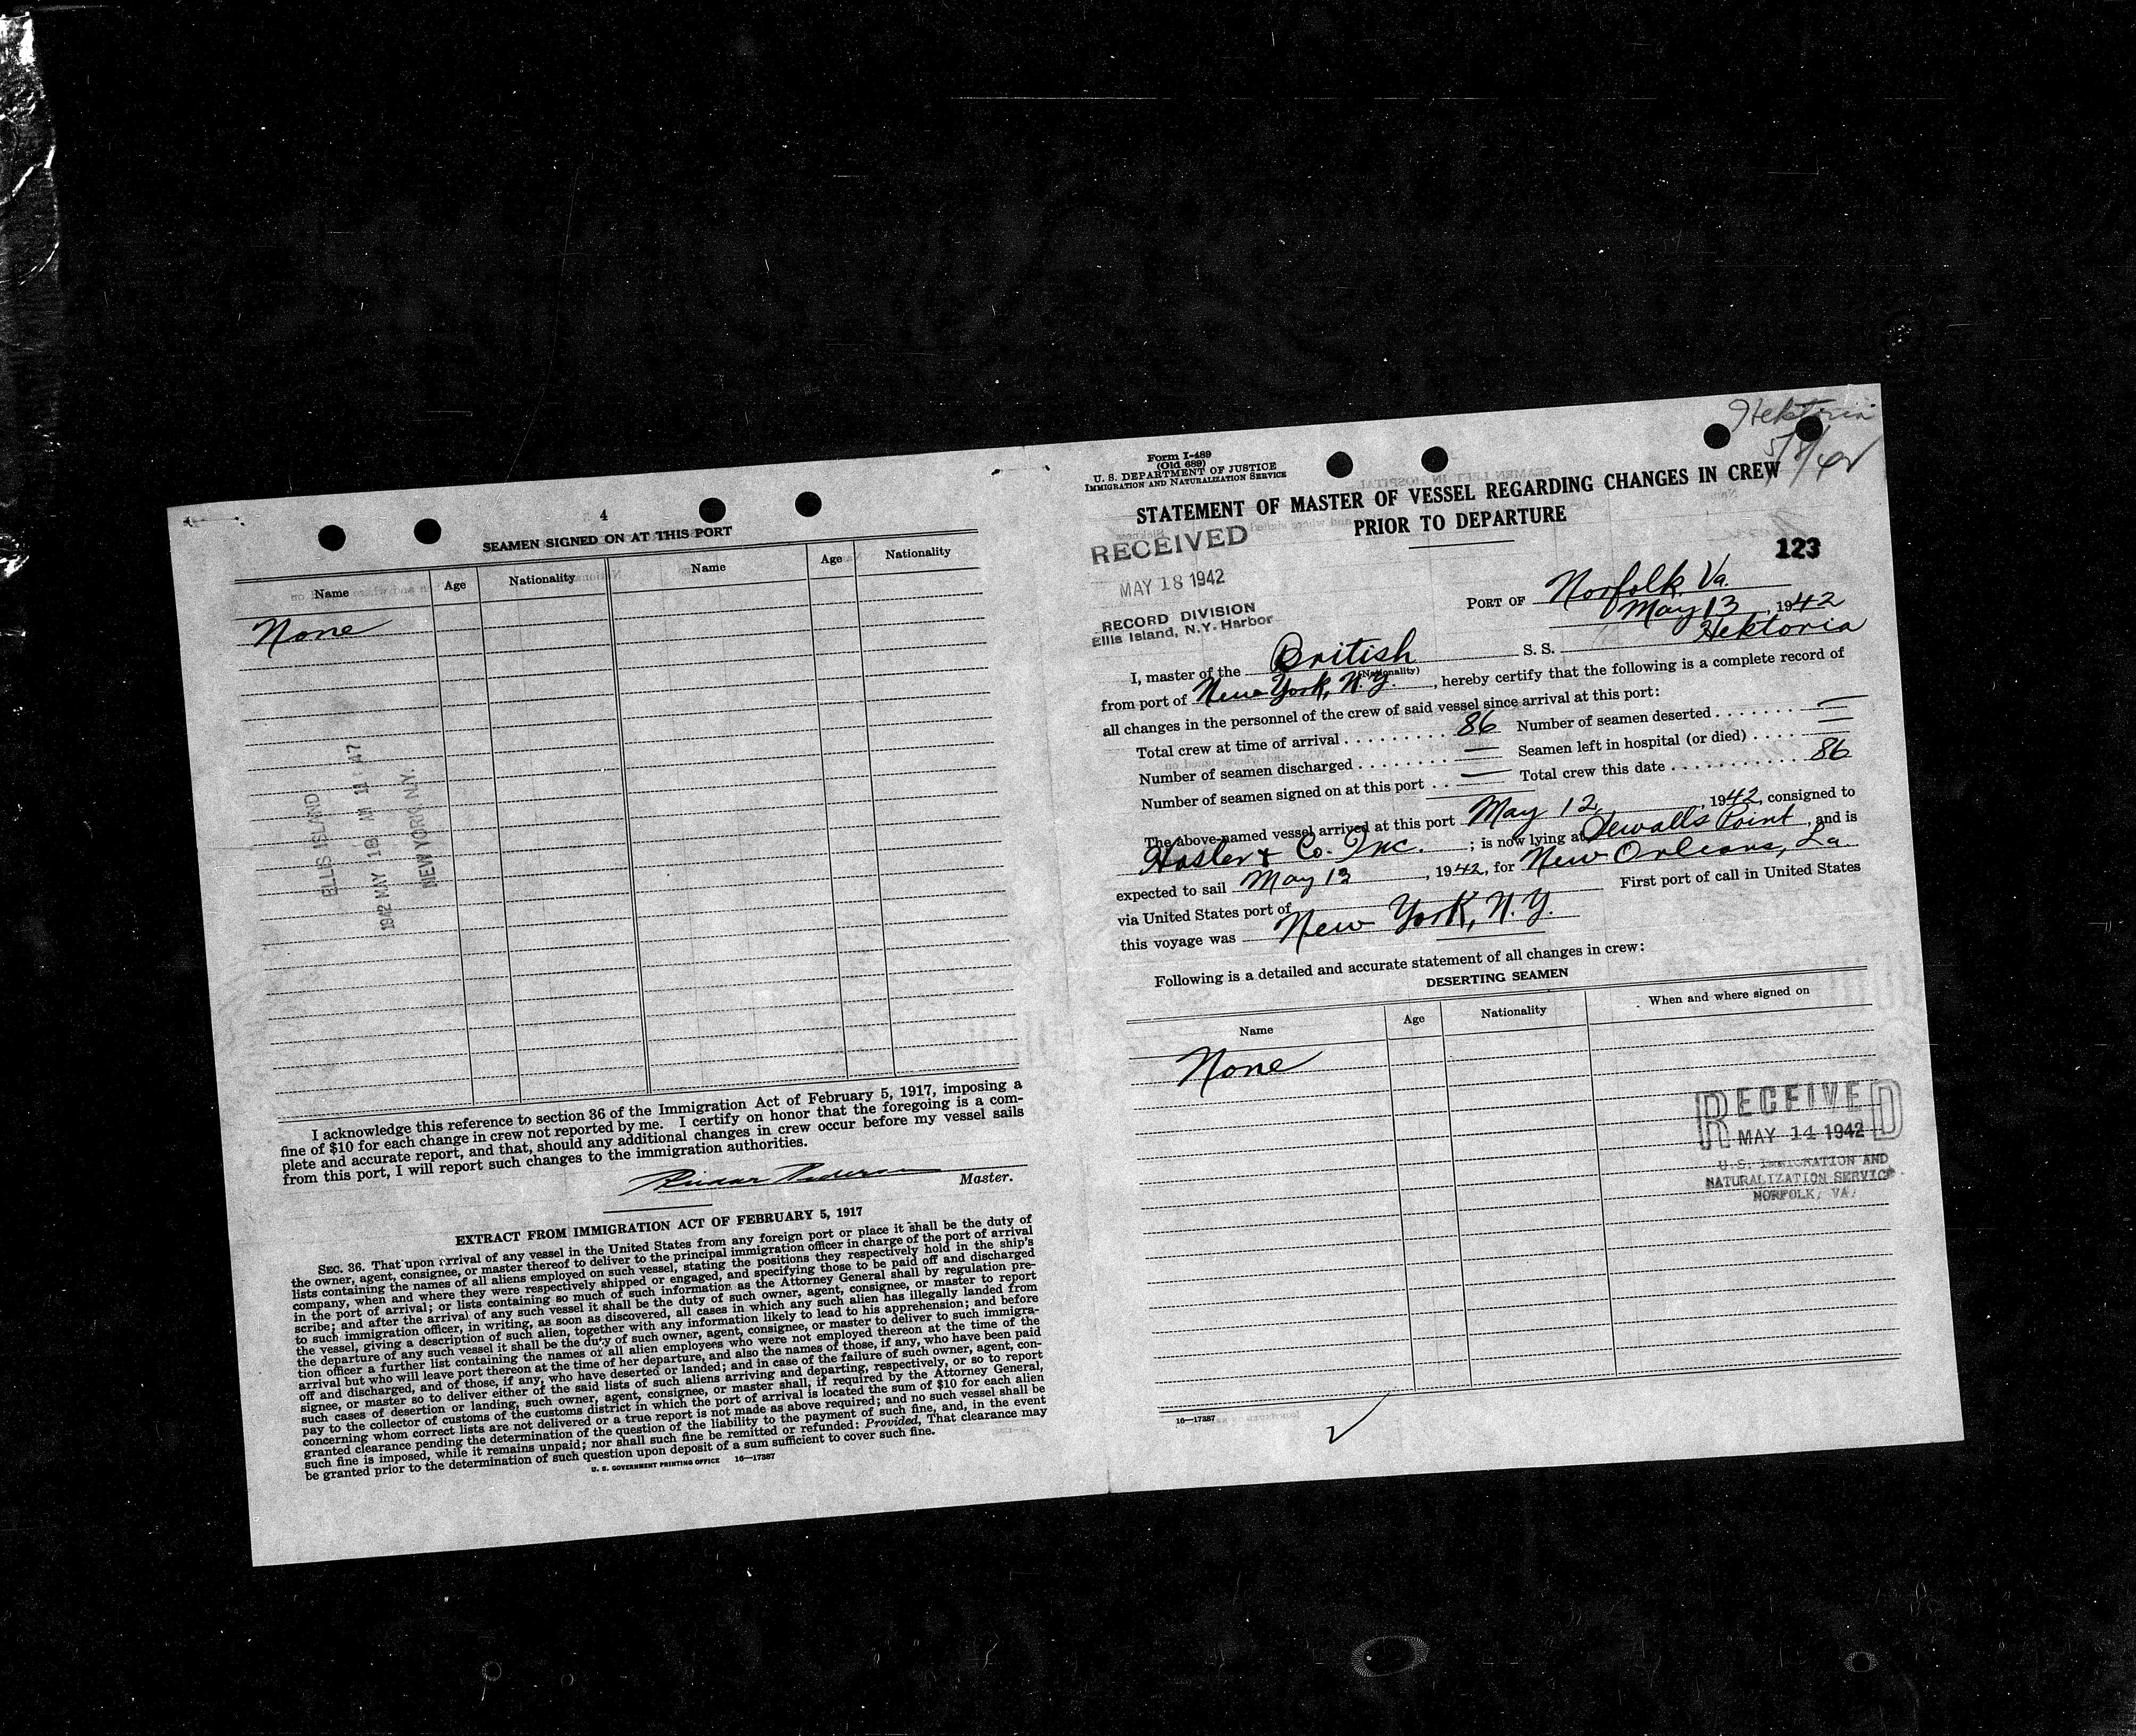 4
SEAMEN SIGNED ON AT THIS PORT
Name Age Nationality Name Age Nationality
None
ELLIS ISLAND
1942 MAY 18 AM 11:47
NEW YORK N.Y.
I acknowledge this reference to section 36 of the Immigration Act of February 5, 1917, imposing a
fine of $10 for each change in crew not reported by me. I certify on honor that the foregoing is a com-
plete and accurate report, and that, should any additional changes in crew occur before my vessel sails
from this port, I will report such changes to the immigration authorities.
Master.
EXTRACT FROM IMMIGRATION ACT OF FEBRUARY 5, 1917
SEC. 36. That upon arrival of any vessel in the United States from any foreign port or place it shall be the duty of
the owner, agent, consignee, or master thereof to deliver to the principal immigration officer in charge of the port of arrival
lists containing the names of all aliens employed on such vessel, stating the positions they respectively hold in the ship's
company, when and where they were respectively shipped or engaged, and specifying those to be paid off and discharged
in the port of arrival; or lists containing so much of such information as the Attorney General shall by regulation pre-
scribe; and after the arrival of any such vessel it shall be the duty of such owner, agent, consignee, or master to report
to such immigration officer, in writing, as soon as discovered, all cases in which any such alien has illegally landed from
the vessel, giving a description of such alien, together with any information likely to lead to his apprehension; and before
the departure of any such vessel it shall be the duty of such owner, agent, consignee, or master to deliver to such immigra-
tion officer a further list containing the names of all alien employees who were not employed thereon at the time of the
arrival but who will leave port thereon at the time of her departure, and also the names of those, if any, who have been paid
off and discharged, and of those, if any, who have deserted or landed; and in case of the failure of such owner, agent, con-
signee, or master so to deliver either of the said lists of such aliens arriving and departing, respectively, or so to report
such cases of desertion or landing, such owner, agent, consignee, or master shall, if required by the Attorney General,
pay to the collector of customs of the customs district in which the port of arrival is located the sum of $10 for each alien
concerning whom correct lists are not delivered or a true report is not made as above required; and no such vessel shall be
granted clearance pending the determination of the question of the liability to the payment of such fine, and, in the event
such fine is imposed, while it remains unpaid; nor shall such fine be remitted or refunded: Provided, That clearance may
be granted prior to the determination of such question upon deposit of a sum sufficient to cover such fine.
U. S. GOVERNMENT PRINTING OFFICE 16—17387
Hektoria
5/8/42
Form I-489
(Old 689)
U. S. DEPARTMENT OF JUSTICE
IMMIGRATION AND NATURALIZATION SERVICE
STATEMENT OF MASTER OF VESSEL REGARDING CHANGES IN CREW
PRIOR TO DEPARTURE
RECEIVED
MAY 18 1942
RECORD DIVISION
Ellis Island, N.Y. Harbor
123
PORT OF Norfolk, Va.
May 13, 1942
I, master of the British S. S. Hektoria
(Nationality)
from port of New York, N.Y., hereby certify that the following is a complete record of
all changes in the personnel of the crew of said vessel since arrival at this port:
Total crew at time of arrival . . . . . . . . . 86 Number of seamen deserted . . . . . . . . —
Number of seamen discharged . . . . . . . . — Seamen left in hospital (or died) . . . . —
Number of seamen signed on at this port . . — Total crew this date . . . . . . . . . . . . 86
The above-named vessel arrived at this port May 12, 1942, consigned to
Hasler & Co. Inc. ; is now lying at Sewalls Point, and is
expected to sail May 13, 1942, for New Orleans, La
via United States port of First port of call in United States
this voyage was New York, N.Y.
Following is a detailed and accurate statement of all changes in crew:
DESERTING SEAMEN
Name Age Nationality When and where signed on
None
RECEIVED
MAY 14 1942
U.S. IMMIGRATION AND
NATURALIZATION SERVICE
NORFOLK, VA.
16—17387